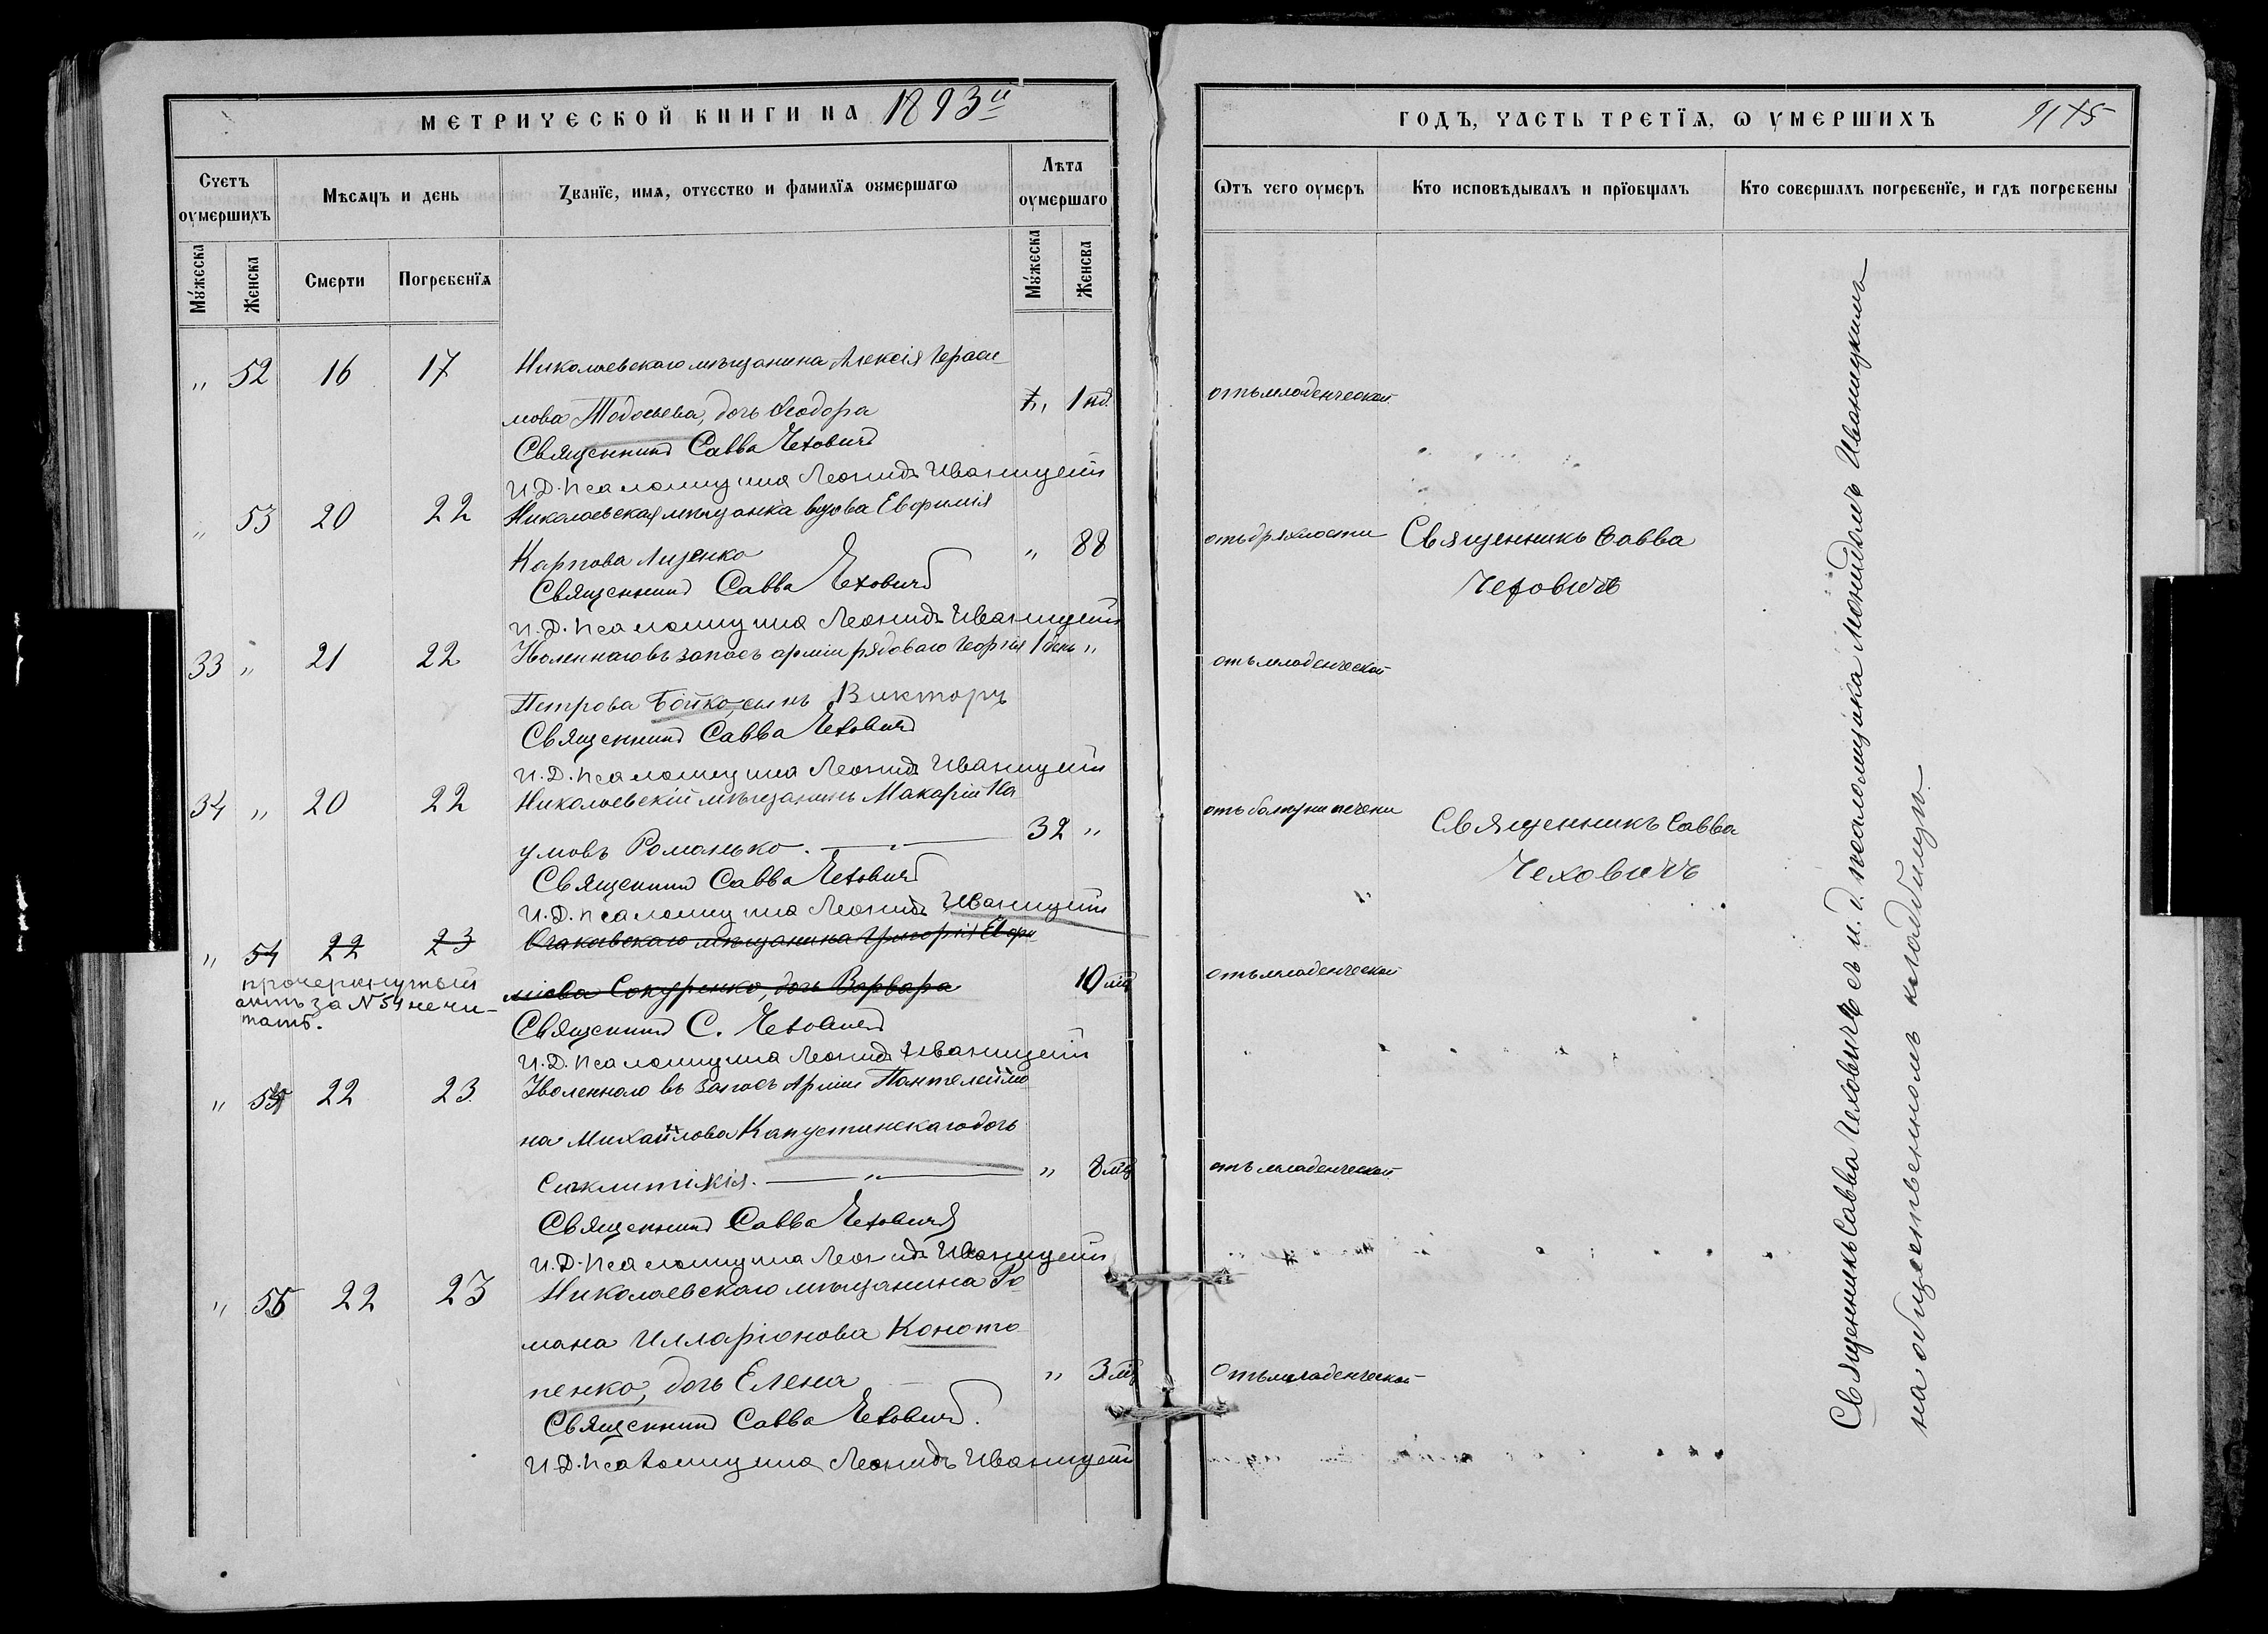 МЕТРИЧЕСКОЙ КНИГИ НА 1893й
ГОДЪ, ЧАСТЬ ТРЕТІЯ, Ѡ УМЕРШИХЪ
Счетъ оумершихъ
Мѣсяцъ и день
Званіе, имя, отчество и фамилія оумершагѡ
Лѣта оумершаго
Ѿтъ чего оумеръ
Кто исповѣдывалъ и пріобщалъ
Кто совершалъ погребеніе, и гдѣ погребены
Мужеска
Женска
Смерти
Погребенія
Мужеска
Женска
" 52 16 17 Николаевскаго мѣщанина Алексія Гераси-
мова Тодосьева, дочь Ѳеодора 1 отъ младенческой
Священникъ Савва Чеховичъ
И.Д. псаломщика Леонидъ Иваницкій
" 53 20 22 Николаевская мѣщанка вдова Евфимія
Карпова Лиценко " 88 отъ дряхлости Священникъ Савва
Чеховичъ
Священникъ Савва Чеховичъ
И.Д. псаломщика Леонидъ Иваницкій
33 " 21 22 Уволеннаго въ запасъ арміи рядоваго Георгія 1 день " отъ младенческой
Петрова Бойко, сынъ Викторъ
Священникъ Савва Чеховичъ
И.Д. псаломщика Леонидъ Иваницкій
34 " 20 22 Николаевскій мѣщанинъ Макарій На-
умовъ Романько. 32 " отъ болѣзни печени Священникъ Савва
Чеховичъ
Священникъ Савва Чеховичъ
И.Д. псаломщика Леонидъ Иваницкій
" 54 22 23 Очаковскаго мѣщанина Григорія Евфи-
міева Сокуренко, дочь Варвара 10 мѣ отъ младенческой
прочеркнутый
актъ за N 54 не чи-
тать.
Священникъ С. Чеховичъ
И.Д. псаломщика Леонидъ Иваницкій
" 54 22 23 Уволеннаго въ запасъ Арміи Пантелеймо-
на Михайлова Капустинскаго дочь
Синклитикія. " 8 мѣ отъ младенческой
Священникъ Савва Чеховичъ
И.Д. псаломщика Леонидъ Иваницкій
" 55 22 23 Николаевскаго мѣщанина Ро-
мана Илларіонова Коното-
пенко, дочь Елена " 3 мѣ Отъ младенческой
Священникъ Савва Чеховичъ.
И.Д. псаломщика Леонидъ Иваницкій
Священникъ Савва Чеховичъ съ и. д. псаломщика Леонидомъ Иваницкимъ
на общественномъ кладбищѣ.